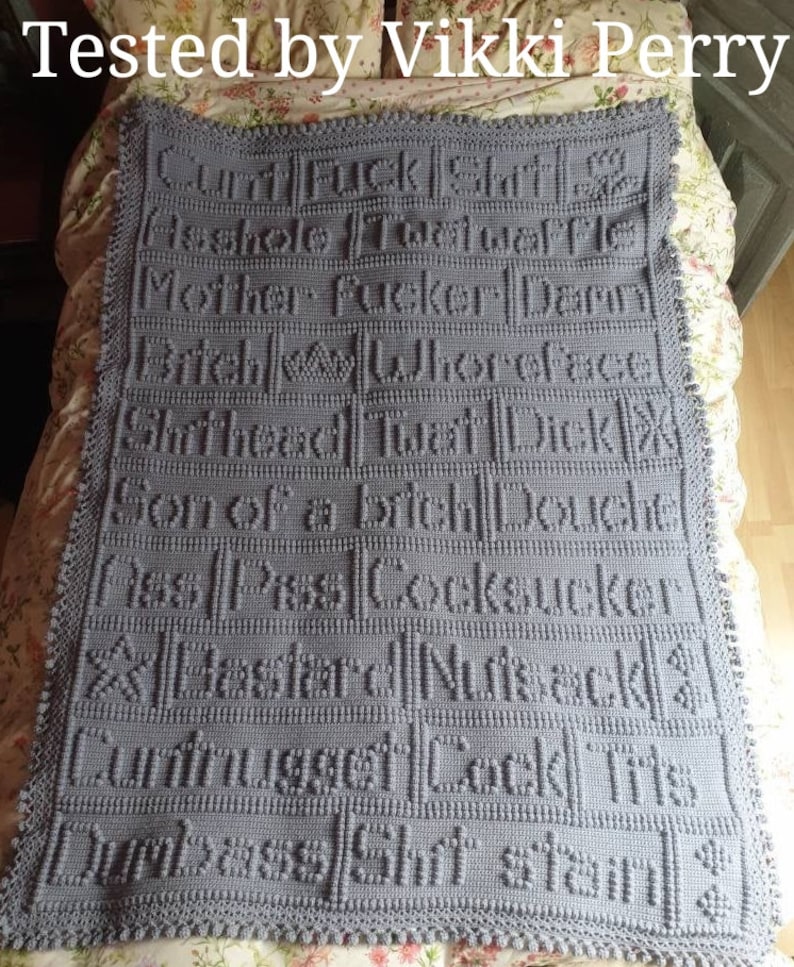 Tested by Vikki Perry
Cunt Fuck Shit
Asshole Twatwaffle
Mother fucker Damn
Bitch Whoreface
Shithead Twat Dick
Son of a bitch Douche
Ass Piss Cocksucker
Bastard Nutsack
Cuntnugget Cock Tits
Dumbass Shit stain